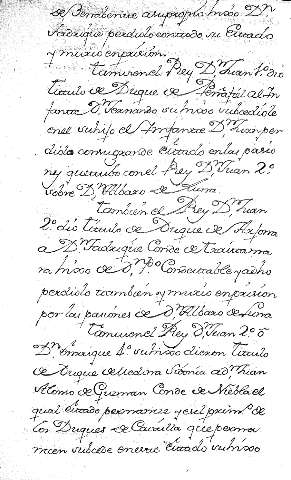 de Benavente a su propio hixo Dn
Fadrique perdiolo con todo su Estado
y murio en prision.
tamvien el Rey Dn Juan 1º dio
titulo de Duque de Peñafiel al In
fante Dn Fernando su hixo subcediole
en el su hixo el Infante Dn Juan per
diolo con su grande estado en las pasio
nes q tubo con el Rey Dn Juan 2º
sobre Dn Albaro de Luna.
tambien el Rey Dn Juan
2º dio titulo de Duque de Arjona
a Dn Fadrique Conde de trastama
ra hixo de Dn Pº Condestable y a este
perdiolo tambien y murio en prision
por las pasiones de Dn Albaro de Luna
tamvien el Rey Dn Juan 2º ô
Dn Enrrique 4º su hixo dieron titulo
de Duque de Medina Sidonia a Dn Juan
Alonso de Guzman Conde de Niebla el
qual estado permanece y es el primº de
los Duques de Castilla que perma
necen subcedio en este estado su hixo